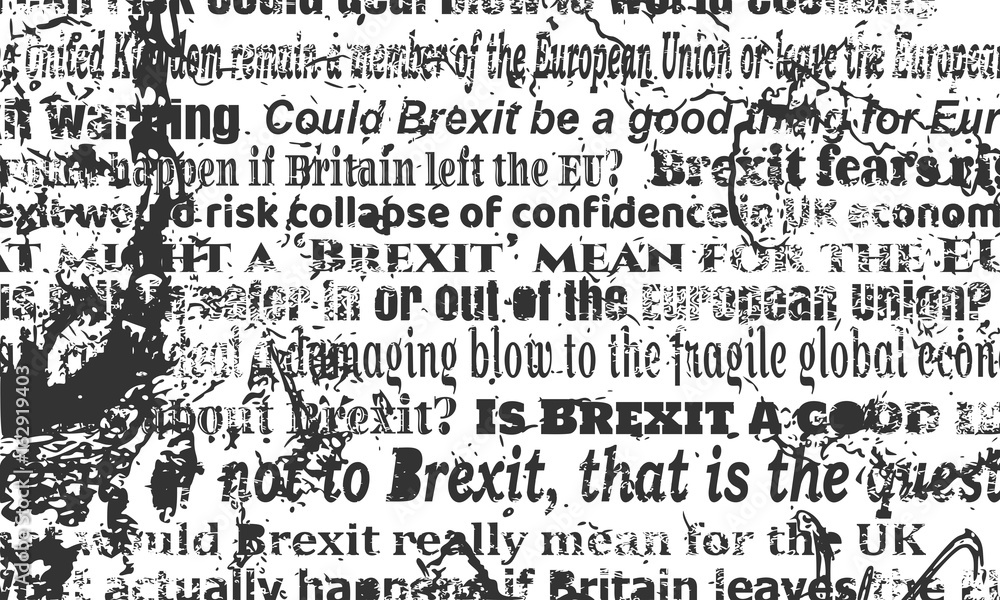 risk could deal blow to world economy
United Kingdom remain a member of the European Union or leave the European
warning Could Brexit be a good thing for Eur
happen if Britain left the EU? Brexit fears ri
exit would risk collapse of confidence in UK econom
AT MIGHT A ‘BREXIT’ MEAN FOR THE EU
safer in or out of the European Union?
deal a damaging blow to the fragile global econ
about Brexit? IS BREXIT A GOOD
not to Brexit, that is the quest
would Brexit really mean for the UK
actually happens if Britain leaves the
Adobe Stock | 162919403